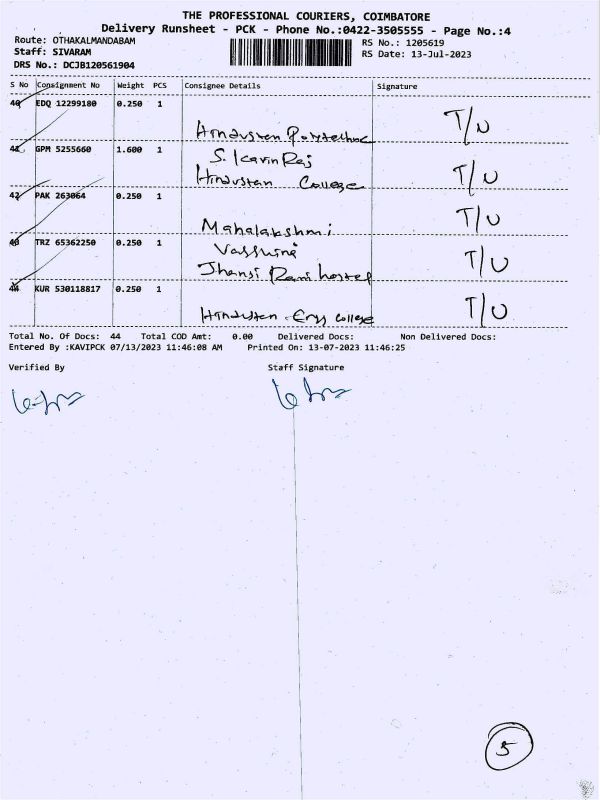 THE PROFESSIONAL COURIERS, COIMBATORE
Delivery Runsheet - PCK - Phone No.:0422-3505555 - Page No.:4
Route: OTHAKALMANDABAM
Staff: SIVARAM
DRS No.: DCJB120561904
RS No.: 1205619
RS Date: 13-Jul-2023
S No Consignment No Weight PCS Consignee Details Signature
40 EDQ 12299180 0.250 1 T/U
Hindustan Polytechnic
41 GPM 5255660 1.600 1 S. Kavin Raj T/U
Hindustan College
42 PAK 263064 0.250 1 T/U
Mahalakshmi
43 TRZ 65362250 0.250 1 T/U
Jhansi Rani hostel
44 KUR 530118817 0.250 1 T/U
Hindustan Engg college
Total No. Of Docs: 44 Total COD Amt: 0.00 Delivered Docs: Non Delivered Docs:
Entered By :KAVIPCK 07/13/2023 11:46:08 AM Printed On: 13-07-2023 11:46:25
Verified By Staff Signature
5